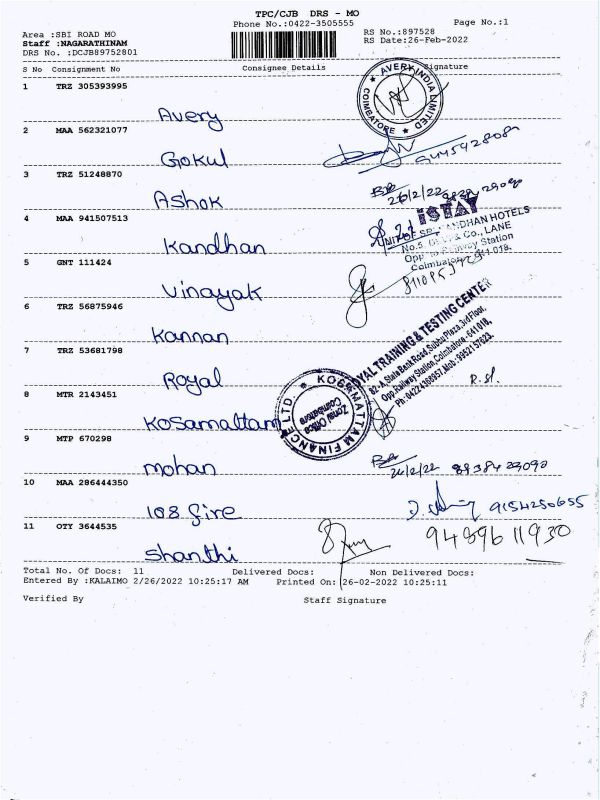 TPC/CJB DRS - MO
Phone No.:0422-3505555 Page No.:1
Area :SBI ROAD MO RS No.:897528
Staff :NAGARATHINAM RS Date:26-Feb-2022
DRS No. :DCJB89752801
S No Consignment No Consignee Details Signature
1 TRZ 305393995
AVERY INDIA LIMITED COIMBATORE
Avery
2 MAA 562321077
Gokul
3 TRZ 51248870
Ashok 26/2/22
iSTAY
4 MAA 941507513
UNIT OF SRI KANDHAN HOTELS
Kandhan
5 GNT 111424
Vinayak
6 TRZ 56875946
Kannan
7 TRZ 53681798
ROYAL TRAINING & TESTING CENTER
82-A, State Bank Road, Subbu Plaza, 3rd Floor,
Opp. Railway Station, Coimbatore - 641 018.
Royal
8 MTR 2143451
KOSAMATTAM FINANCE LTD.
Zonal Office
Coimbatore
Kosamattam
9 MTP 670298
mohan 26/2/22
10 MAA 286444350
108 fire 9154250655
11 OTY 3644535
Shanthi 9489611930
Total No. Of Docs: 11 Delivered Docs: Non Delivered Docs:
Entered By :KALAIMO 2/26/2022 10:25:17 AM Printed On: 26-02-2022 10:25:11
Verified By Staff Signature